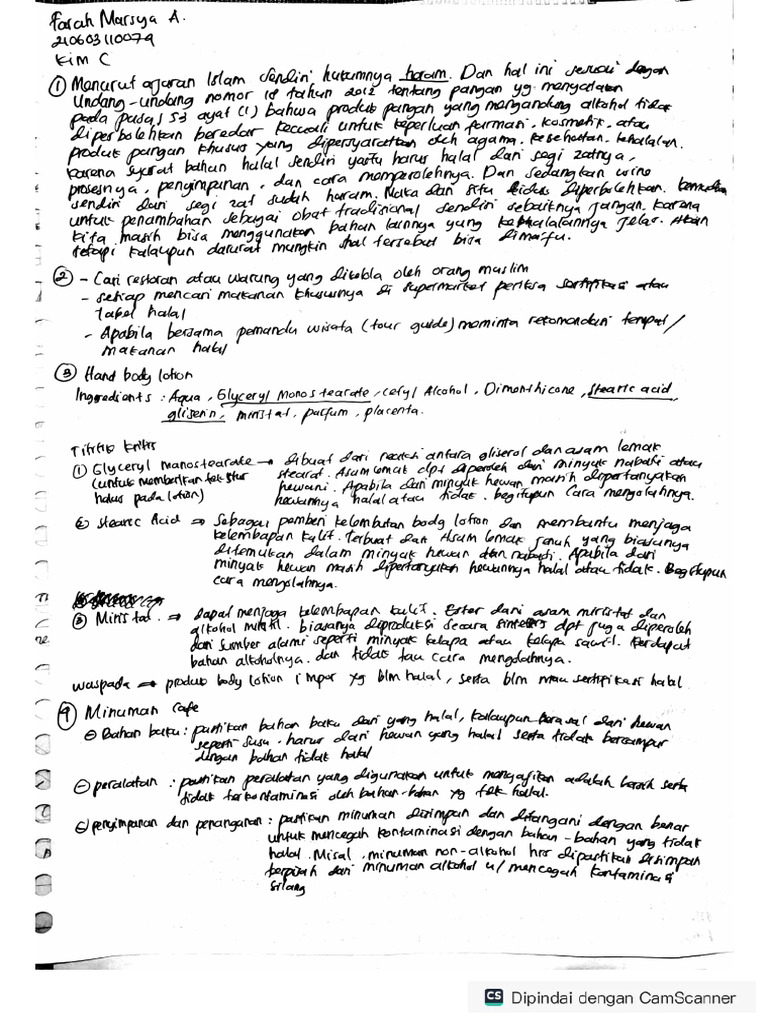 Farah Marsya A.
210603110079
Kim C
① Menurut ajaran Islam sendiri hukumnya haram. Dan hal ini sesuai dengan
Undang-undang nomor 18 tahun 2012 tentang pangan yg menyatakan
pada pasal 53 ayat (1) bahwa produk pangan yang mengandung alkohol tidak
diperbolehkan beredar kecuali untuk keperluan farmasi, kosmetik, atau
produk pangan khusus yang dipersyaratkan oleh agama, kesehatan, kehalalan.
karena syarat bahan halal sendiri yaitu harus halal dari segi zatnya,
prosesnya, penyimpanan, dan cara memperolehnya. Dan sedangkan wine
sendiri dari segi zat sudah haram. Maka dari situ tidak diperbolehkan.
untuk penambahan sebagai obat tradisional sendiri sebaiknya jangan. karena
kita masih bisa menggunakan bahan lainnya yang kehalalannya jelas. Akan
tetapi kalaupun darurat mungkin hal tersebut bisa dimaafu.
② - Cari restoran atau warung yang dikelola oleh orang muslim
- setiap mencari makanan khususnya di supermarket periksa sertifikasi atau
label halal
- Apabila bersama pemandu wisata (tour guide) meminta rekomendasi tempat/
makanan halal
③ Hand body lotion
Ingredients : Aqua, Glyceryl Monostearate, cetyl Alcohol, Dimenthicone, stearic acid,
gliserin, miristat, parfum, placenta.
Titik kritis
① Glyceryl monostearate → dibuat dari reaksi antara gliserol dan asam lemak
(untuk memberikan tekstur stearat. Asam lemak dpt diperoleh dari minyak nabati atau
halus pada lotion) hewani. Apabila dari minyak hewan masih dipertanyakan
hewannya halal atau tidak. begitupun cara mengolahnya.
② stearic Acid → Sebagai pemberi kelembutan body lotion dan membantu menjaga
kelembapan kulit. Terbuat dari Asam lemak jenuh yang biasanya
ditemukan dalam minyak hewan dan nabati. Apabila dari
minyak hewan masih dipertanyakan hewannya halal atau tidak. Begitupun
cara mengolahnya.
③ Miristat. → dapat menjaga kelembapan kulit. Ester dari asam miristat dan
alkohol biasanya diproduksi secara sintetis dpt juga diperoleh
dari sumber alami seperti minyak kelapa atau kelapa sawit. Terdapat
bahan alkoholnya. dan tidak tau cara mengolahnya.
waspada → produk body lotion impor yg blm halal, serta blm mau sertifikasi halal
④ Minuman cafe
⊖ Bahan baku : pastikan bahan baku dari yang halal, kalaupun berasal dari hewan
seperti susu. harus dari hewan yang halal serta tidak bercampur
dengan bahan tidak halal
⊖ peralatan : pastikan peralatan yang digunakan untuk menyajikan adalah bersih serta
tidak terkontaminasi oleh bahan-bahan yg tdk halal.
⊖ penyimpanan dan penanganan : pastikan minuman disimpan dan ditangani dengan benar
untuk mencegah kontaminasi dengan bahan-bahan yang tidak
halal. Misal, minuman non-alkohol hrs dipastikan disimpan
terpisah dari minuman alkohol u/ mencegah kontaminasi
silang
CS Dipindai dengan CamScanner